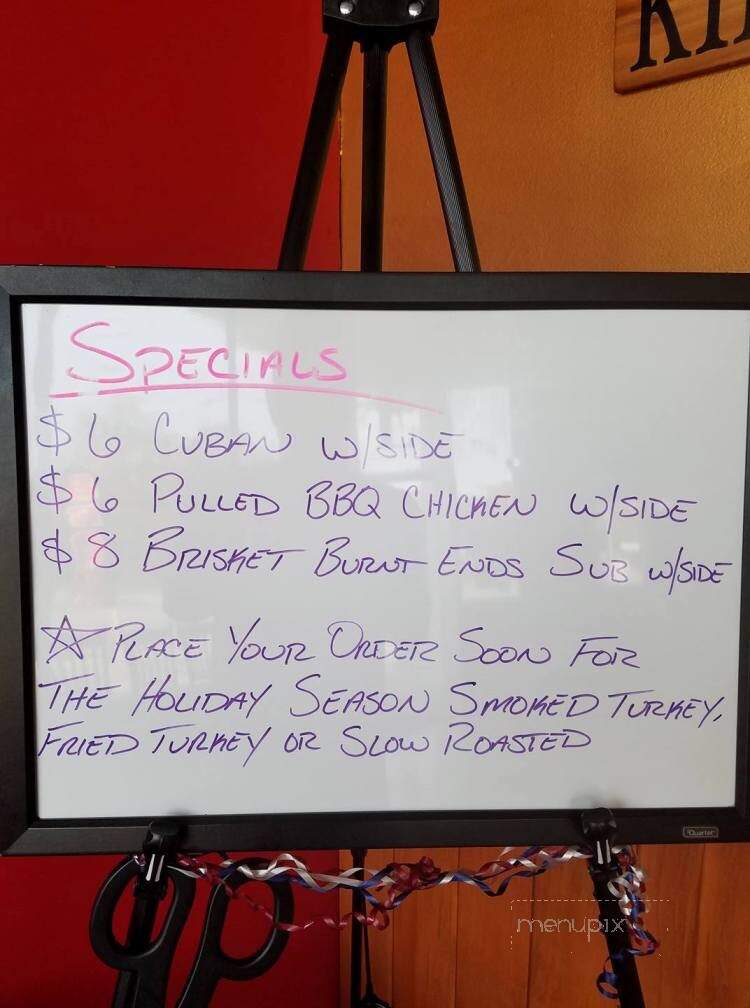 KI
SPECIALS
$6 CUBAN W/SIDE
$6 PULLED BBQ CHICKEN W/SIDE
$8 BRISKET BURNT ENDS SUB W/SIDE
☆ PLACE YOUR ORDER SOON FOR
THE HOLIDAY SEASON SMOKED TURKEY,
FRIED TURKEY OR SLOW ROASTED
Quartet
menupix